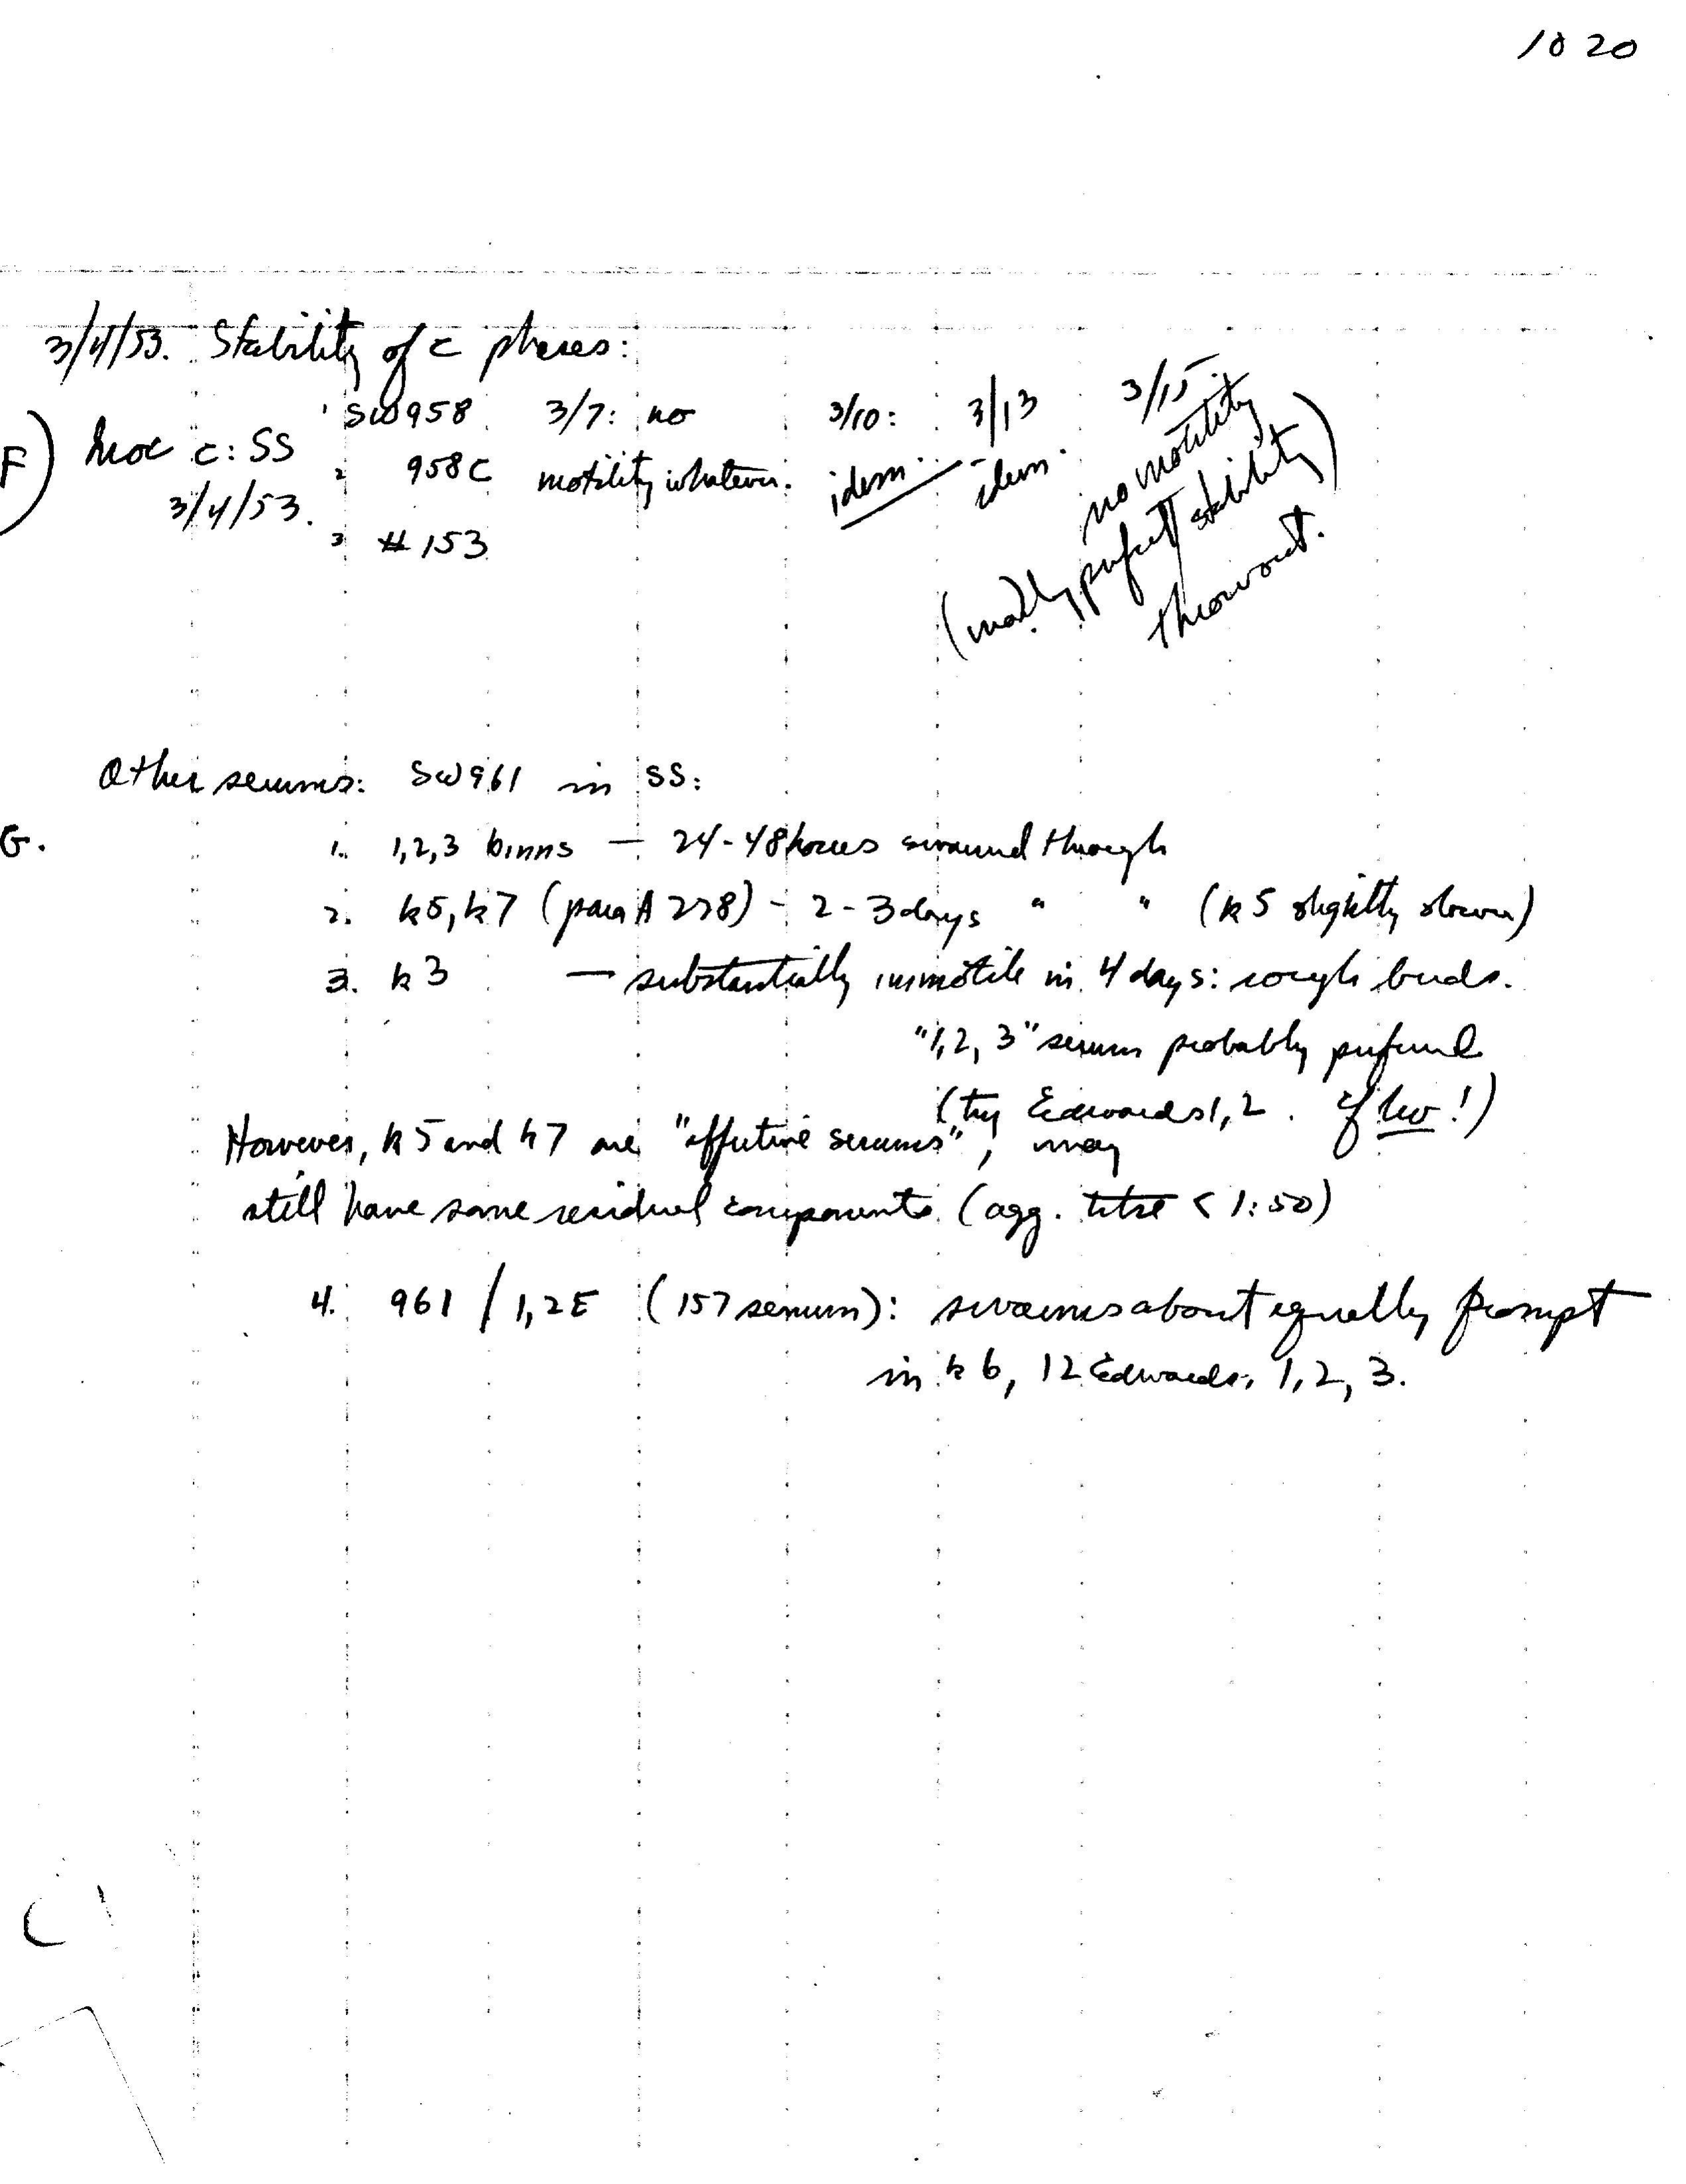 1020
3/4/53. Stability of c phases:
F) Inoc c: SS
3/4/53.
1 SW958 3/7: no 3/10: 3/13 3/15.
2 958C motility whatever. idem. idem. no motility
3 #153
( perfect stability)
throwout.
Other serums: SW961 in SS:
G. 1. 1,2,3 binns — 24-48 hours swarmed through
2. k5, k7 (para A 228) - 2-3 days " " (k5 slightly slower)
3. k3 — substantially immotile in 4 days: rough buds.
"1,2,3" serum probably preferred
(try Edwards 1,2. if low!)
However, k5 and k7 are "effective serums", may
still have some residual components (agg. titre < 1:50)
4. 961 / 1,2E (157 serum): swarms about equally prompt
in k6, 12 Edwards, 1,2,3.